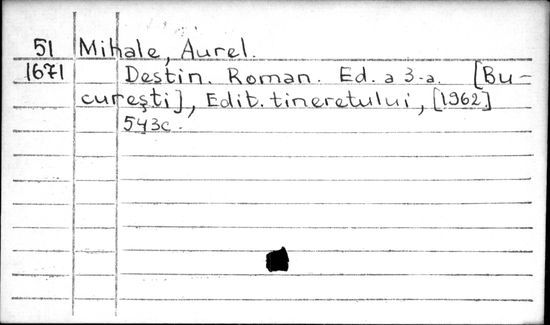 51 Mihale, Aurel.
1671 Destin. Roman. Ed. a 3-a. [Bu-
curești], Edit. tineretului, [1962]
543c.